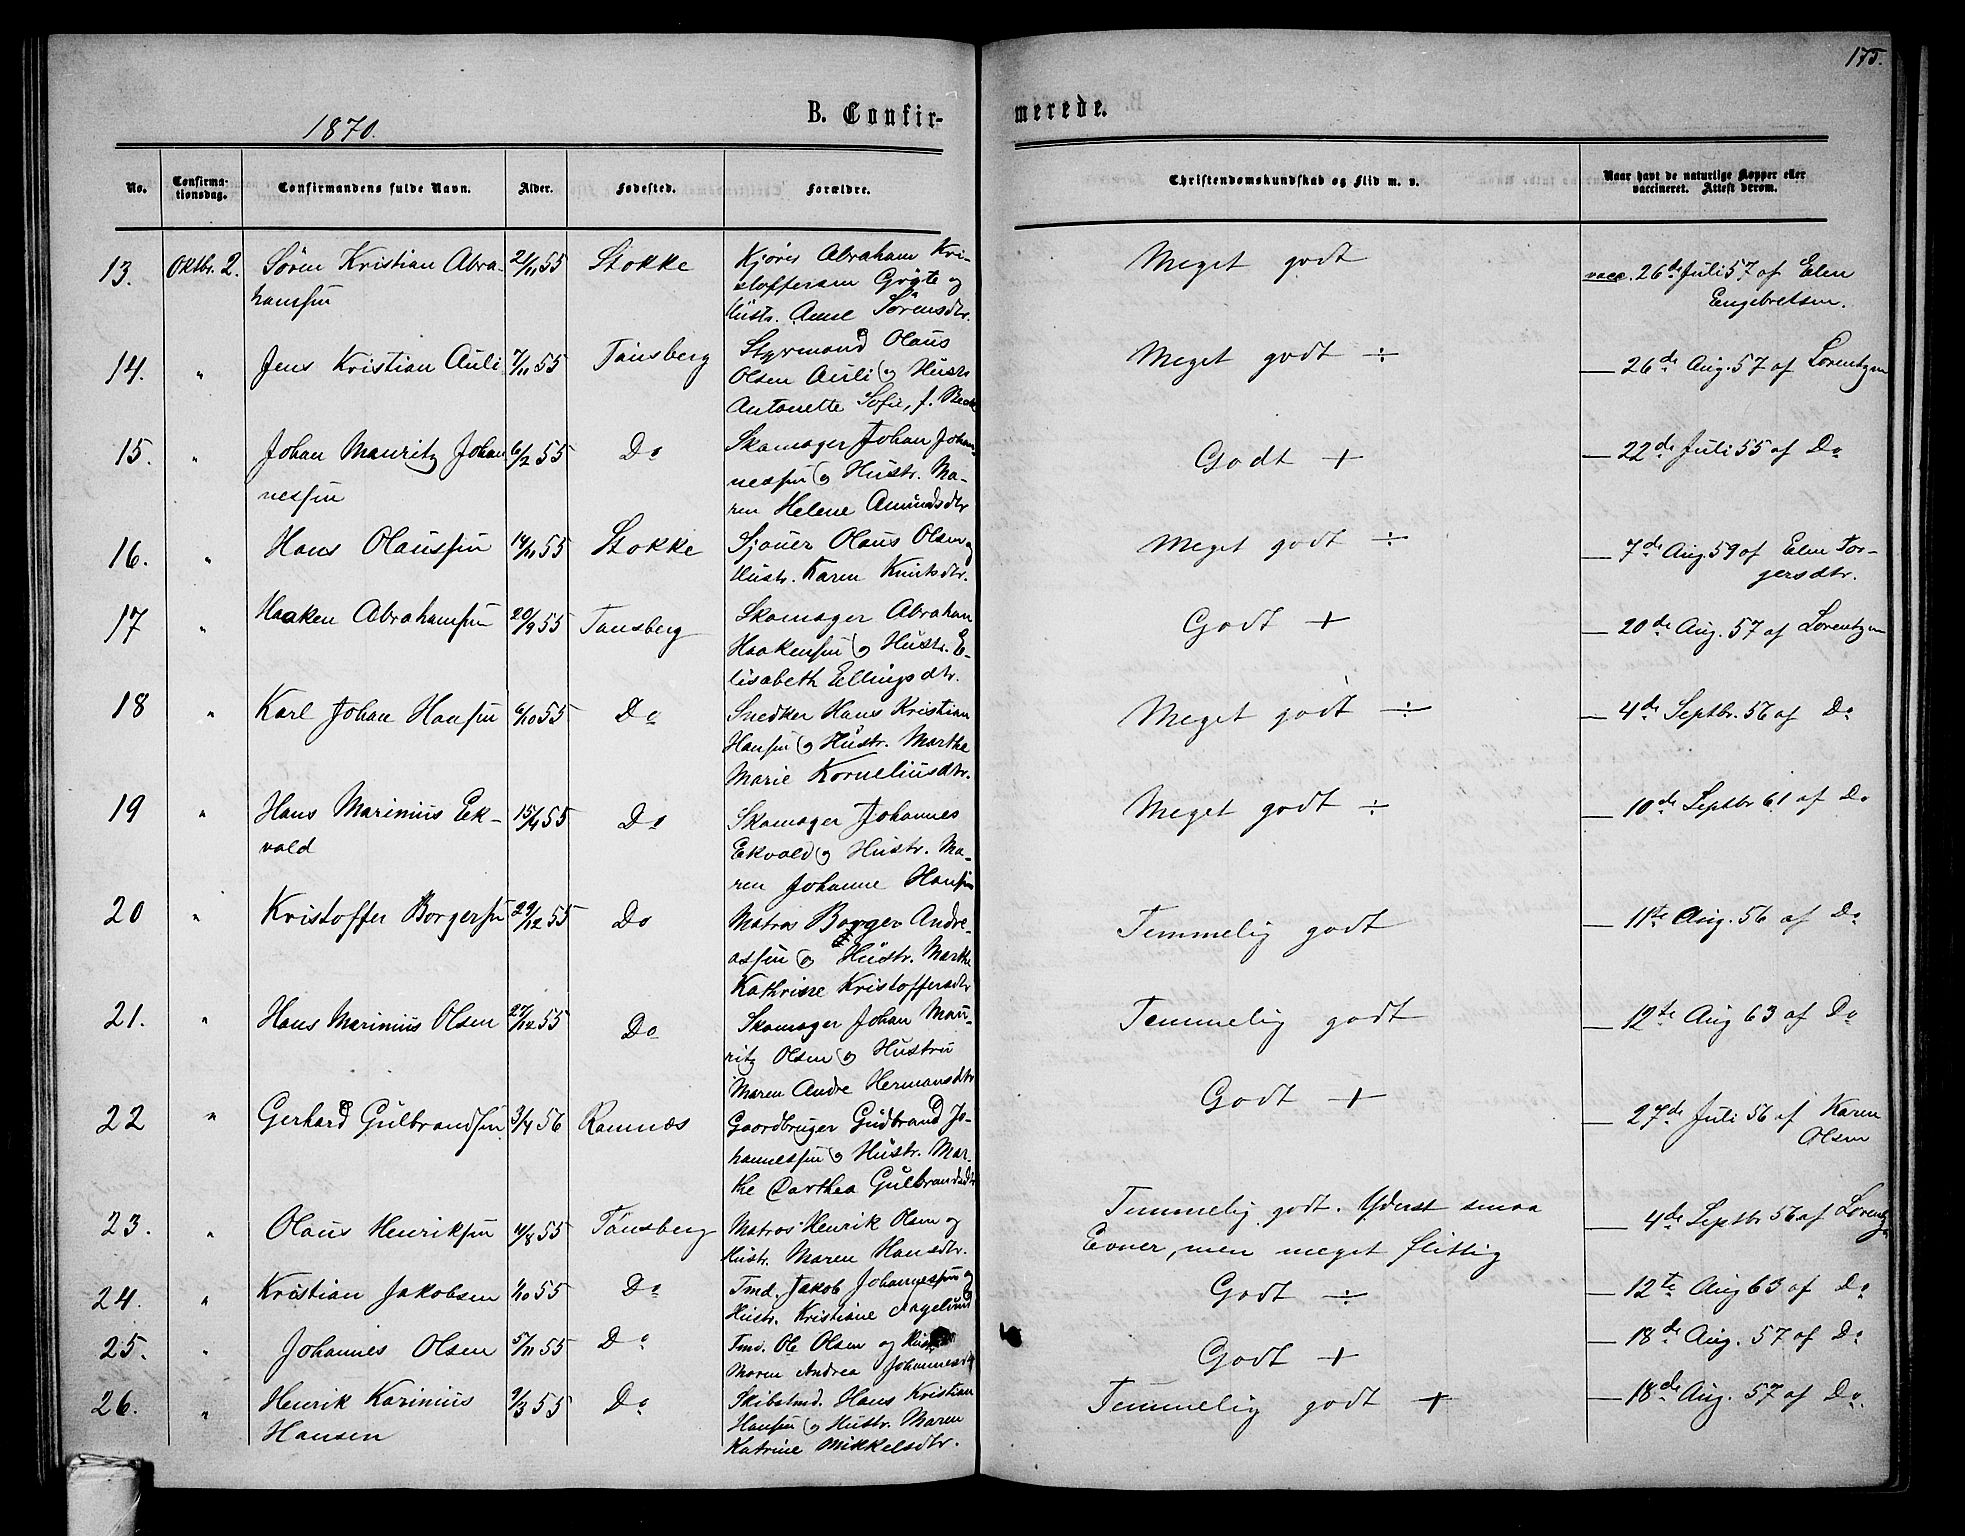 175.
1870.
B. Confir-
merede.
No.
Confirma-
tionsdag.
Confirmandens fulde Navn.
Alder.
Fødested.
Forældre.
Christendomskundskab og Flid m. v.
Naar havt de naturlige Kopper eller
vaccineret. Attest derom.
13. Oktbr. 2. Sören Kristian Abra-
hanssen
21/11 55 Stokke
Abraham Kri-
stoffersen Gröte og
Hustr. Anne Sörensdtr.
Meget godt
vacc. 26de Juli 57 af Elen
Engebretsen.
14. " Jens Kristian Auli 7/11 55 Tönsberg
Styrmand Olaus
Olsen Auli og Hustr.
Antonette Sofie, f. Beck
Meget godt ÷
— 26de Aug. 57 af Lorentzen
15. " Johan Mauritz Johan
nessen
6/2 55 Do
Skomager Johan Johan-
nessen og Hustr. Ma-
ren Helene Amundsdtr
Godt +
— 22de Juli 55 af Do
16. " Hans Olaussen 14/11 55 Stokke
Sjouer Olaus Olsen og
Hustr. Karen Knutsdtr.
Meget godt ÷
— 7de Aug. 59 af Elen Tor-
gersdtr.
17 " Haaken Abrahamsen 20/9 55 Tönsberg
Skomager Abraham
Haakensen og Hustr. E-
lisabeth Ellingsdtr.
Godt +
— 20de Aug. 57 af Lorentzen
18 " Karl Johan Hansen 6/10 55 Do
Snedker Hans Kristian
Hansen og Hustr. Marthe
Marie Korneliusdtr.
Meget godt ÷
— 4de Septbr. 56 af Do
19 " Hans Marinius Ek-
vald
15/4 55 Do
Skomager Johannes
Ekvald og Hustr. Ma-
ren Johanne Hansen
Meget godt ÷
— 10de Septbr 61 af Do
20 " Kristoffer Borgersen 29/12 55 Do
Matros Borger Andre-
assen og Hustr. Marthe
Kathrine Kristoffersdtr
Temmelig godt
— 11te Aug. 56 af Do
21. " Hans Marinius Olsen 27/12 55 Do
Skomager Johan Mau-
ritz Olsen og Hustru
Maren Andre Hermansdtr
Temmelig godt
— 12te Aug 63 af Do
22 " Gerhard Gulbrandsen 3/4 56 Ramnæs
Gaardbruger Gudbrand Jo-
hannessen og Hustr. Mar-
the Dorthea Gulbrandsdtr
Godt +
— 27de Juli 56 af Karen
Olsen
23. " Olaus Henriksen 4/8 55 Tönsberg
Matros Henrik Olsen og
Hustr. Maren Hansdtr.
Temmelig godt. Yderst smaa
Evner, men meget flittig
— 4de Septbr 56 af Lorentz
24. " Kristian Jakobsen 1/10 55 Do
Tmd. Jakob Johannessen og
Hustr. Kristiane
Godt ÷
— 12te Aug 63 af Do
25. " Johannes Olsen 5/11 55 Do
Tmd. Ole Olsen og
Maren Andrea Johannesdtr
Godt +
— 18de Aug. 57 af Do
26. " Henrik Karinius
Hansen
9/3 55 Do
Skibstmd. Hans Kristian
Hansen og Hustr. Maren
Katrine Mikkelsdtr.
Temmelig godt +
— 18de Aug. 57 af Do.